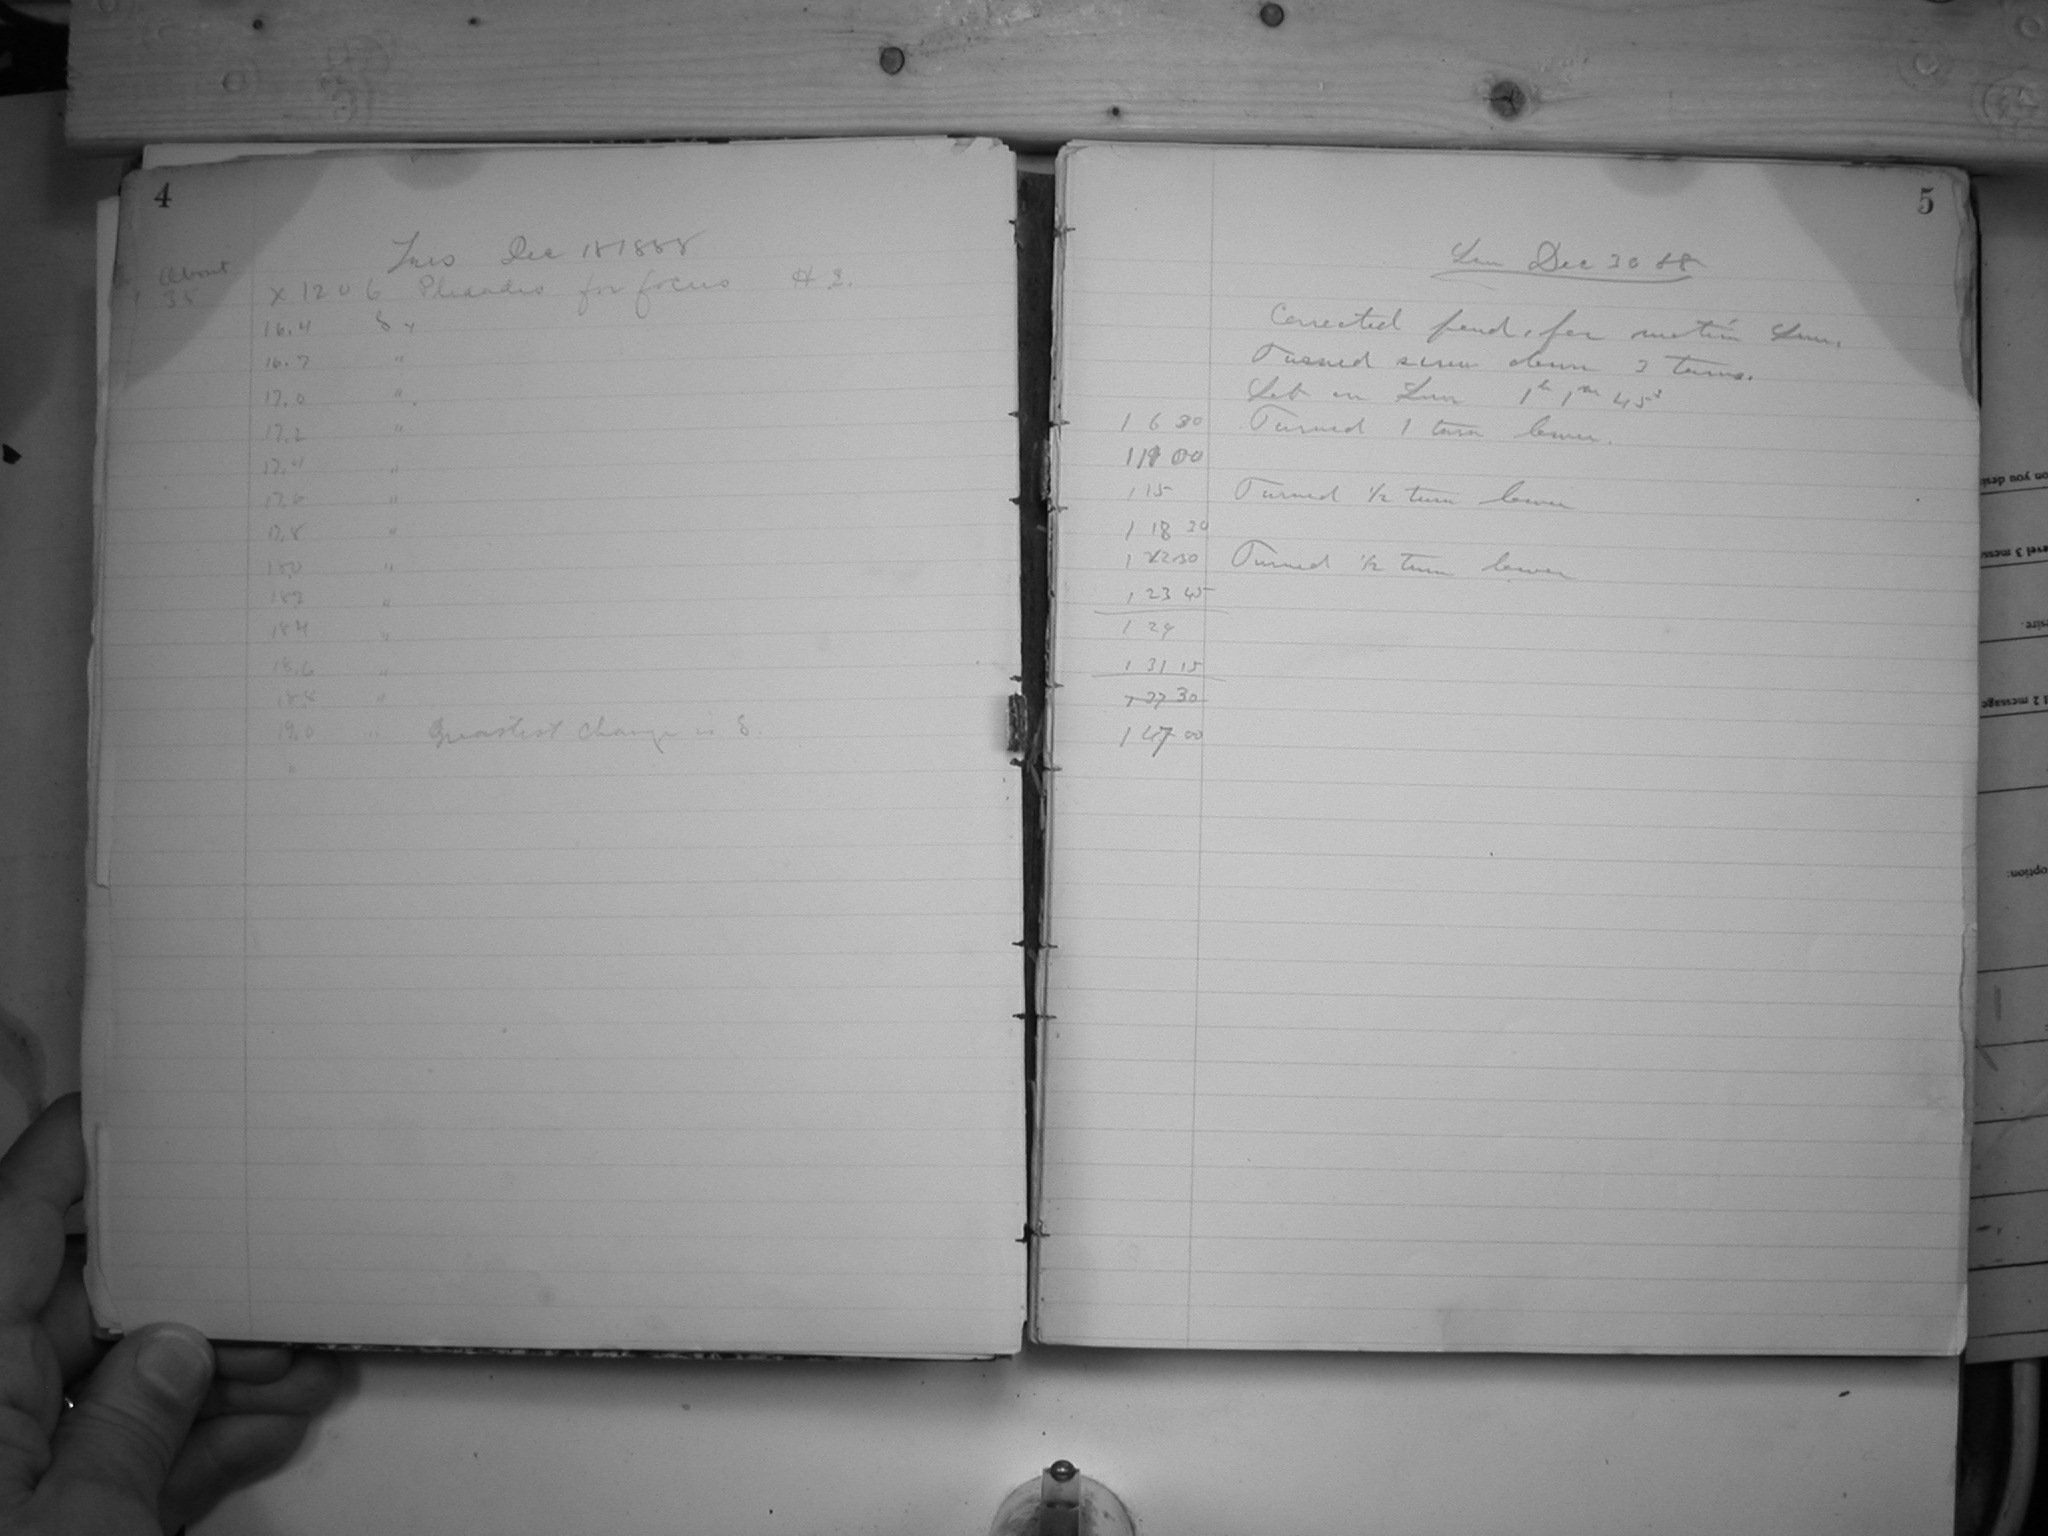 4
Tues Dec 18 1888
About
35 X 1206 Pleiades for focus H.E.
16.4 8 "
16.7 "
17.0 "
17.2 "
17.4 "
17.6 "
17.8 "
18.0 "
18.2 "
18.4 "
18.6 "
18.8 "
19.0 " Greatest change is 8.
"
5
Sun Dec 30 88
Corrected pend. for motion Sun.
Turned screw down 3 turns.
Set on Sun 1h 1m 45s
1 6 30 Turned 1 turn lower.
1 19 00
1 15 Turned 1/2 turn lower
1 18 30
1 22 30 Turned 1/2 turn lower
1 23 45
1 29
1 31 15
1 37 30
1 47 00
on you desi
evel 3 messa
esire.
l 2 message
option: